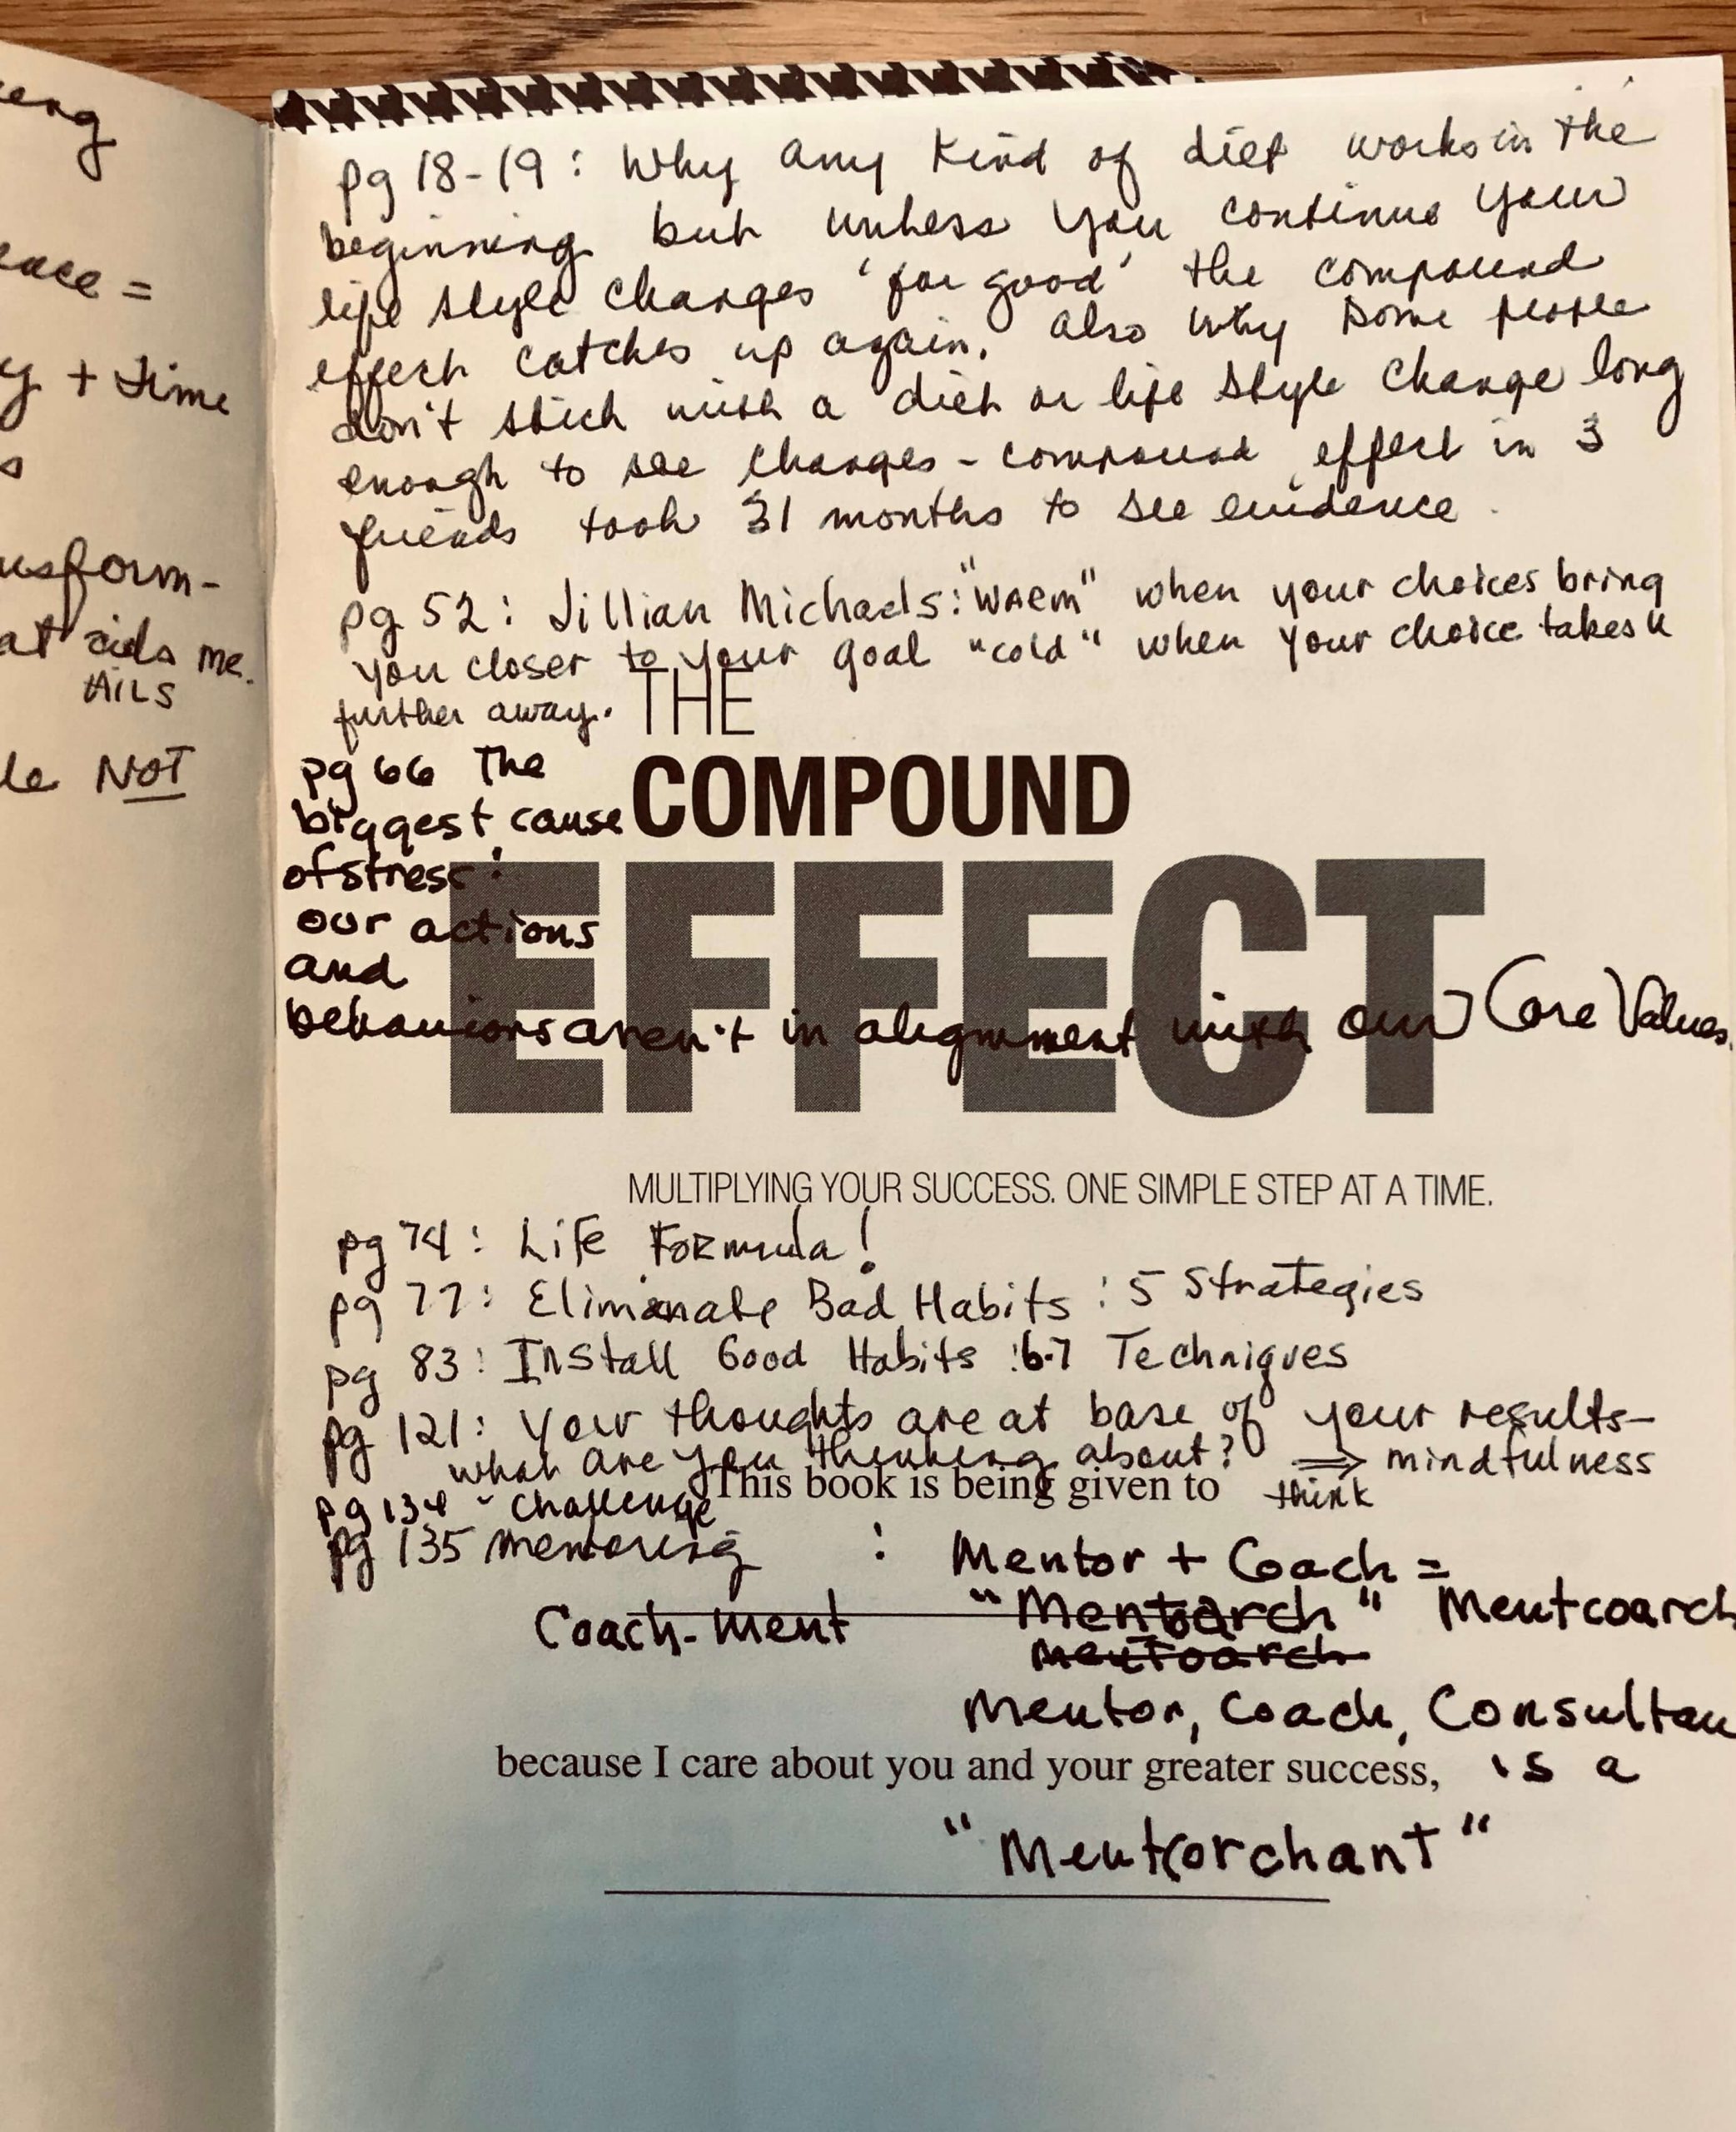 eng
ence =
y + time
s
nsform-
at aids me.
AILS
le NOT
pg 18-19: Why any kind of diet works in the
beginning but unless you continue your
life style changes 'for good' the compound
effect catches up again. Also why some people
don't stick with a diet or life style change long
enough to see changes - compound effect in 3
friends took 31 months to see evidence.
pg 52: Jillian Michaels: "WARM" when your choices bring
you closer to your goal "cold" when your choice takes u
further away.
THE
pg 66 The
biggest cause
COMPOUND
of stress:
EFFECT
our actions
and
behaviors aren't in alignment with our Core Values.
MULTIPLYING YOUR SUCCESS. ONE SIMPLE STEP AT A TIME.
pg 74: Life Formula!
pg 77: Eliminate Bad Habits: 5 Strategies
pg 83: Install Good Habits: 6-7 Techniques
pg 121: Your thoughts are at base of your results-
what are you thinking about? ⇒ mindfulness
think
This book is being given to
pg 134 - Challenge
pg 135 Mentoring : Mentor + Coach =
Coach-ment "Mentoarch" Mentcoarch
Mentoarch
Mentor, Coach, Consultan
because I care about you and your greater success,
is a
"Mentcorchant"